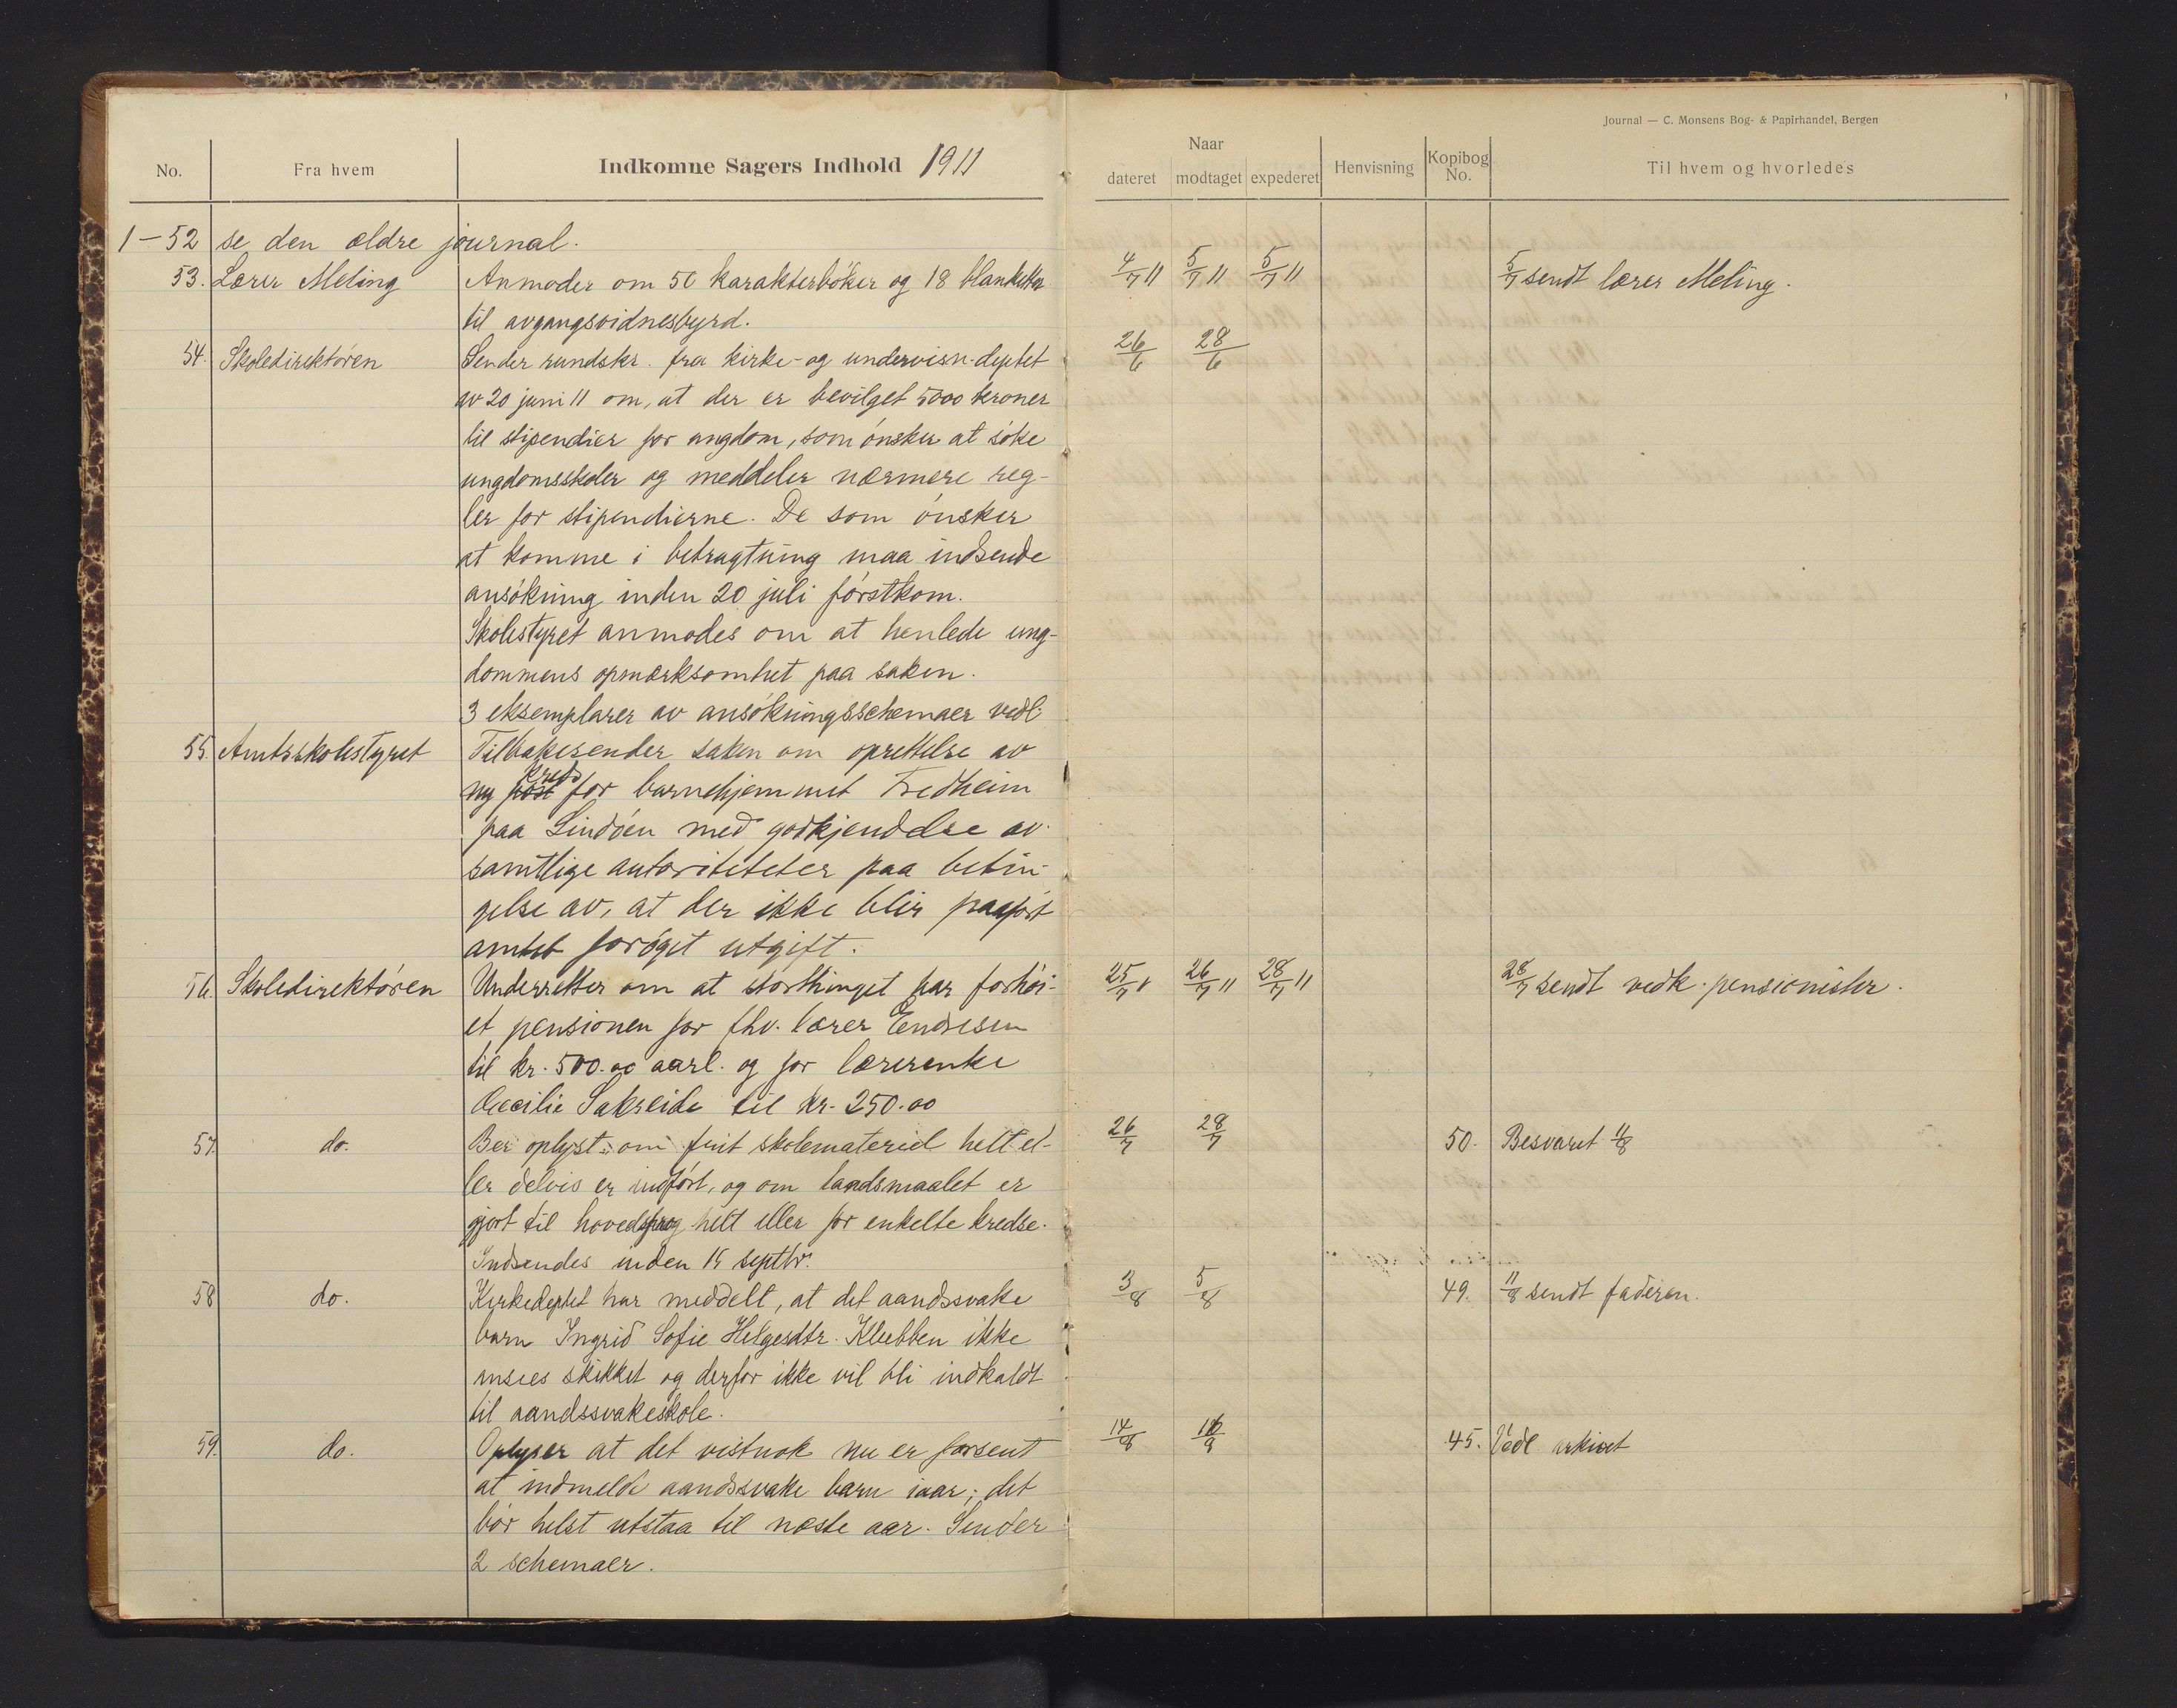 Journal — C. Monsens Bog- & Papirhandel, Bergen
No. Fra hvem Indkomne Sagers Indhold 1911
Naar
dateret modtaget expederet Henvisning Kopibog No. Til hvem og hvorledes
1–52 se den ældre journal.
53. Lærer Meling Anmoder om 50 karakterbøker og 18 blanketter 4/7 11 5/7 11 5/7 11 5/7 sendt lærer Meling.
til avgangsvidnesbyrd.
54. Skoledirektøren Sender rundskr. fra kirke- og undervisn.deptet 26/6 28/6
av 20 juni 11 om, at der er bevilget 5000 kroner
til stipendier for ungdom, som ønsker at søke
ungdomsskoler og meddeler nærmere reg-
ler for stipendierne. De som ønsker
at komme i betragtning maa indsende
ansøkning inden 20 juli førstkom.
Skolestyret anmodes om at henlede ung-
dommens opmerksomhet paa saken.
3 eksemplarer av ansøkningsschemaer vedl.
55. Amtsskolestyret Tilbakesender saken om oprettelse av
kreds
ny post for barnehjemmet Fredheim
paa Lindøen med godkjendelse av
samtlige autoriteter paa betin-
gelse av, at der ikke blir paaført
amtet forøget utgift.
56. Skoledirektøren Underretter om at storthinget har forhøi- 25/7 11 26/7 11 28/7 11 28/7 sendt vedk. pensionister.
et pensionen for fhv. lærer Endresen
til kr. 500.00 aarl. og for lærerenke
Cecilie Sakseide til kr. 250.00
57. do. Ber oplyst: om frit skolemateriel helt el- 26/7 28/7 50. Besvaret 11/8
ler delvis er indført, og om landsmaalet er
gjort til hovedsprog helt eller for enkelte kredse.
Indsendes inden 15 septbr.
58 do. Kirkedeptet har meddelt, at det aandssvake 3/8 5/8 49. 11/8 sendt faderen.
barn Ingrid Sofie Helgesdtr. Klubben ikke
ansees skikket og derfor ikke vil bli indkaldt
til aandssvakeskole.
59. do. Oplyser at det vistnok nu er forsent 14/8 45. Vedl arkivet
at indmelde aandssvake barn iaar; det
bør helst utstaa til næste aar. Sender
2 schemaer.